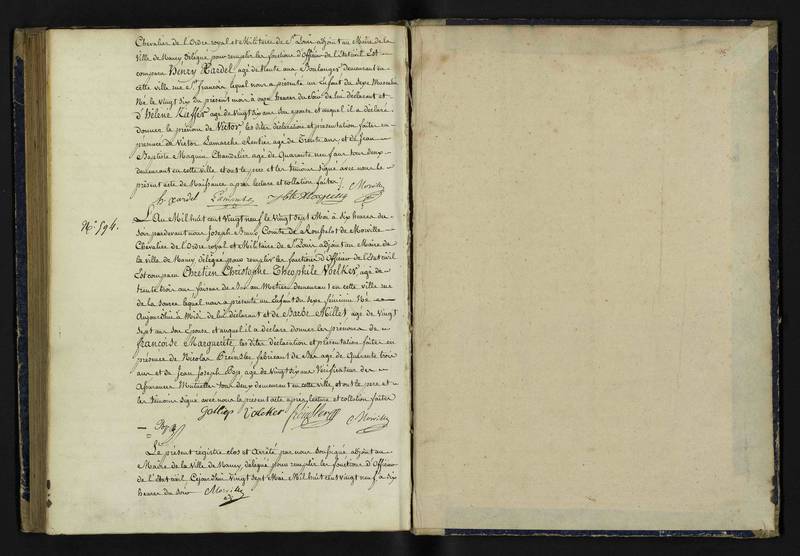 Chevalier de l'Ordre royal et Militaire de St Louis adjoint au Maire de la
Ville de Nancy délégué pour remplir les fonctions d'Officier de l'Etat civil Est
comparu Henry Xardel agé de trente ans Boulanger demeurant en
cette ville rue St François lequel nous a présenté un Enfant du sexe Masculin
Né le Vingt Six du présent mois à onze heures du Soir de lui déclarant et
d'Hélène Kieffer agée de Vingt Six ans son épouse et auquel il a déclaré
donner le prénom de Victor les dites déclaration et présentation faites en
présence de Victor Lamarche Rentier agé de Trente ans, et de Jean
Baptiste Magnien Chandelier agé de Quarante neuf ans tous deux
demeurant en cette ville et ont le père et les témoins signé avec nous le
présent acte de Naissance après lecture et collation faites /. Morville
h. xardel Lamarche
N° 594.
L'an Mil huit cent Vingt neuf le Vingt sept Mai à Six heures du
soir pardevant nous Joseph Comte de Rousselot de Morville
Chevalier de l'Ordre royal et Militaire de St Louis adjoint au Maire de
la ville de Nancy délégué pour remplir les fonctions d'Officier de l'Etat civil
Est comparu Chretien Christophe Theophile Voelker agé de
trente trois ans faiseur de Bas au Metier demeurant en cette ville rue
de la source lequel nous a présenté un Enfant du sexe féminin Né
Aujourd'hui à Midi de lui déclarant et de Barbe Millet agée de Vingt
sept ans son Epouse et auquel il a déclaré donner les prénoms de
françoise Marguerite, les dites déclaration et présentation faites en
présence de Nicolas fabricant de Bas agé de Quarante trois
ans et de Jean Joseph agé de Vingt six ans Vérificateur des
Assurances Mutuelles tous deux demeurant en cette ville, et ont le père et
les témoins signé avec nous le présent acte après lecture et collation faites
Voleker Morville
Le présent registre clos et Arrêté par nous Soussigné adjoint au
Maire de la Ville de Nancy, délégué pour remplir les fonctions d'Officier
de l'Etat civil Cejourd'hui Vingt sept Mai Mil huit cent vingt neuf à six
heures du soir Morville